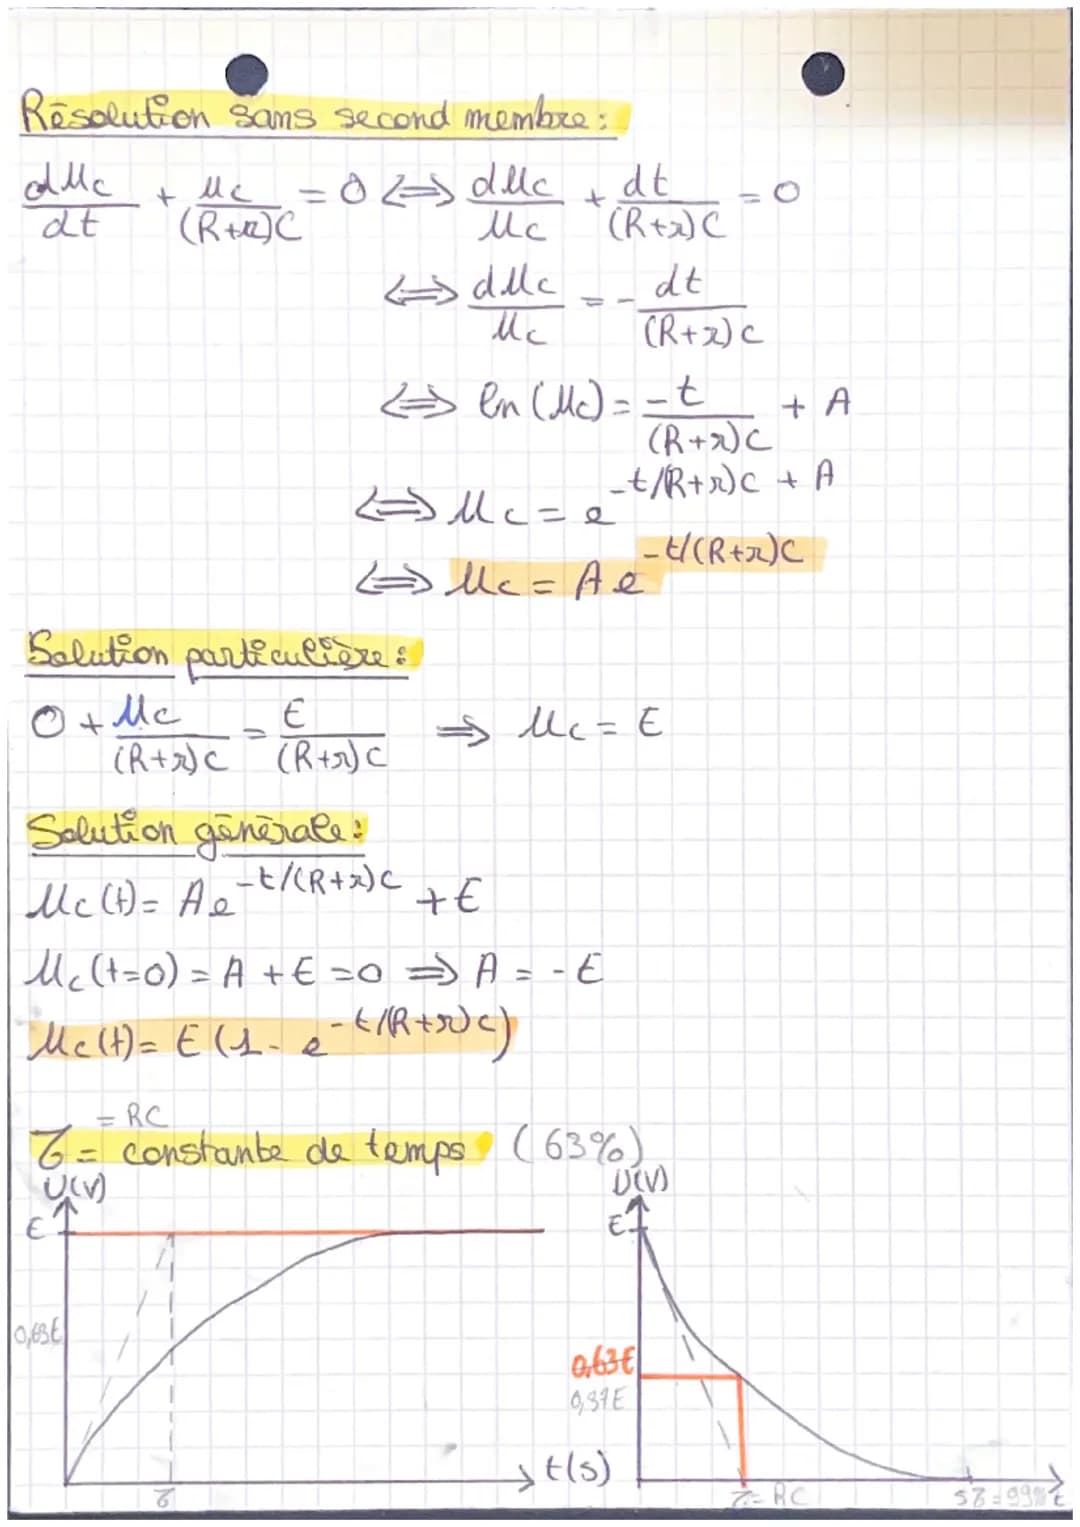 Résolution sans second membre :
dUc/dt + Uc/(R+r)C = 0 ⟺ dUc/Uc + dt/(R+r)C = 0
⟺ dUc/Uc = - dt/(R+r)C
⟺ ln (Uc) = -t/(R+r)C + A
⟺ Uc = e^-t/(R+r)C + A
⟺ Uc = A e^-t/(R+r)C
Solution particulière :
0 + Uc/(R+r)C = E/(R+r)C ⟹ Uc = E
Solution générale :
Uc (t) = A e^-t/(R+r)C + E
Uc (t=0) = A + E = 0 ⟹ A = - E
Uc (t) = E (1 - e^-t/(R+r)C)
= RC
τ = constante de temps (63%)
U(V)
E
0,63E
τ
t(s)
U(V)
E
0,63E
0,37E
τ = RC
5τ = 99%
t